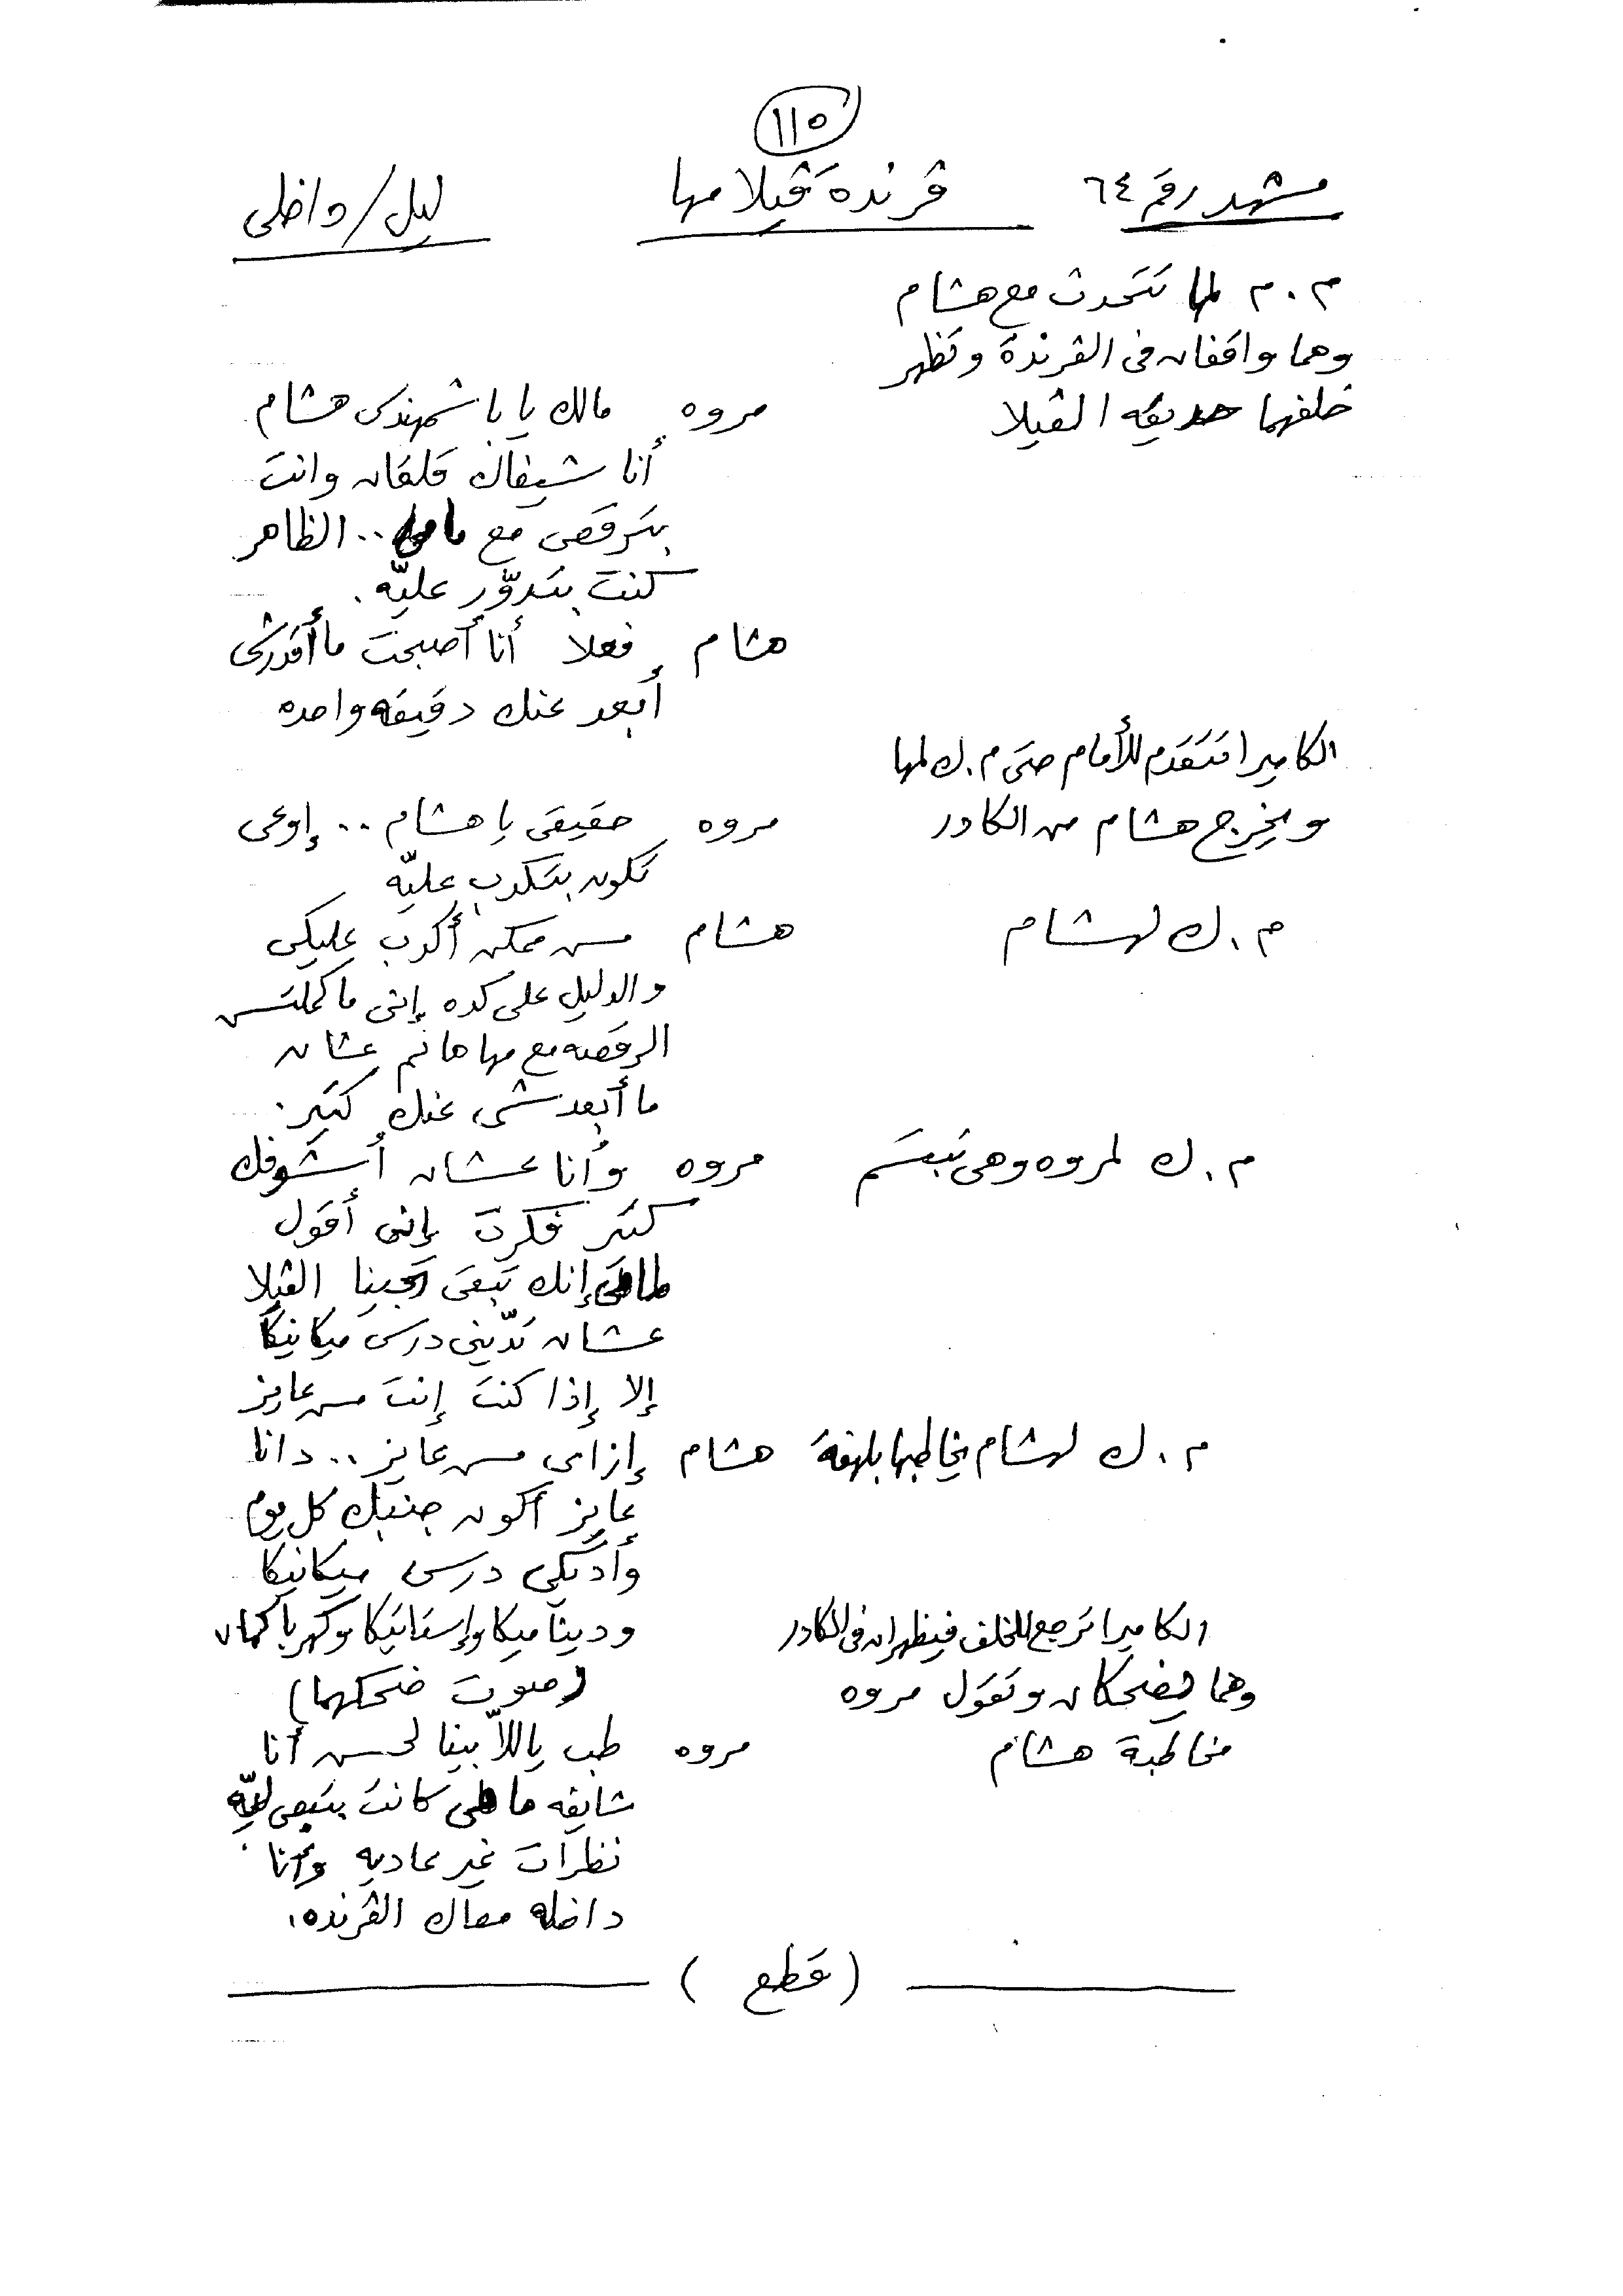 ١١٥
مشهد رقم ٦٤ ڤرندة ڤيلا مها ليل/داخلى
م . م لمها تتحدث مع هشام
وهما واقفان فى الڤرندة وتظهر
خلفهما حديقه الڤيلا
مروه مالك يا باشمهندس هشام
أنا شيفاك قلقان وانت
بترقص مع مامى .. الظاهر
كنت بتدوّر عليّه .
هشام فعلا أنا أصبحت ما أقدرش
أبعد عنك دقيقه واحده
الكاميرا تتقدم للأمام حتى م . ك لمها
ويخرج هشام من الكادر
مروه حقيقى يا هشام .. إوعى
تكون بتكدب عليّه
م . ك لهشام هشام مش ممكن أكدب عليكى
والدليل على كده إنى ما كملتش
الرقصه مع مها هانم عشان
ما أبعدش عنك كتير .
م . ك لمروه وهى تبتسم مروه وأنا عشان أشوفك
كتير فكرت إنى أقول
لمامى إنك تبقى تجينا الڤيلا
عشان تدّينى درس ميكانيكا
إلا إذا كنت إنت مش عايز
م . ك لهشام يخاطبها بلهفة هشام إزاى مش عايز .. دانا
عايز أكون جنبك كل يوم
وأديكى درس ميكانيكا
وديناميكا وإستاتيكا وكهربا كمان
الكاميرا ترجع للخلف فيظهران فى الكادر
(صوت ضحكهما)
وهما يضحكان وتقول مروه
مخاطبة هشام مروه طب ياللا بينا لحسن أنا
شايفه مامى كانت بتبص ليّه
نظرات غير عاديه وأنا
داخله معاك الڤرنده .
( قطع )